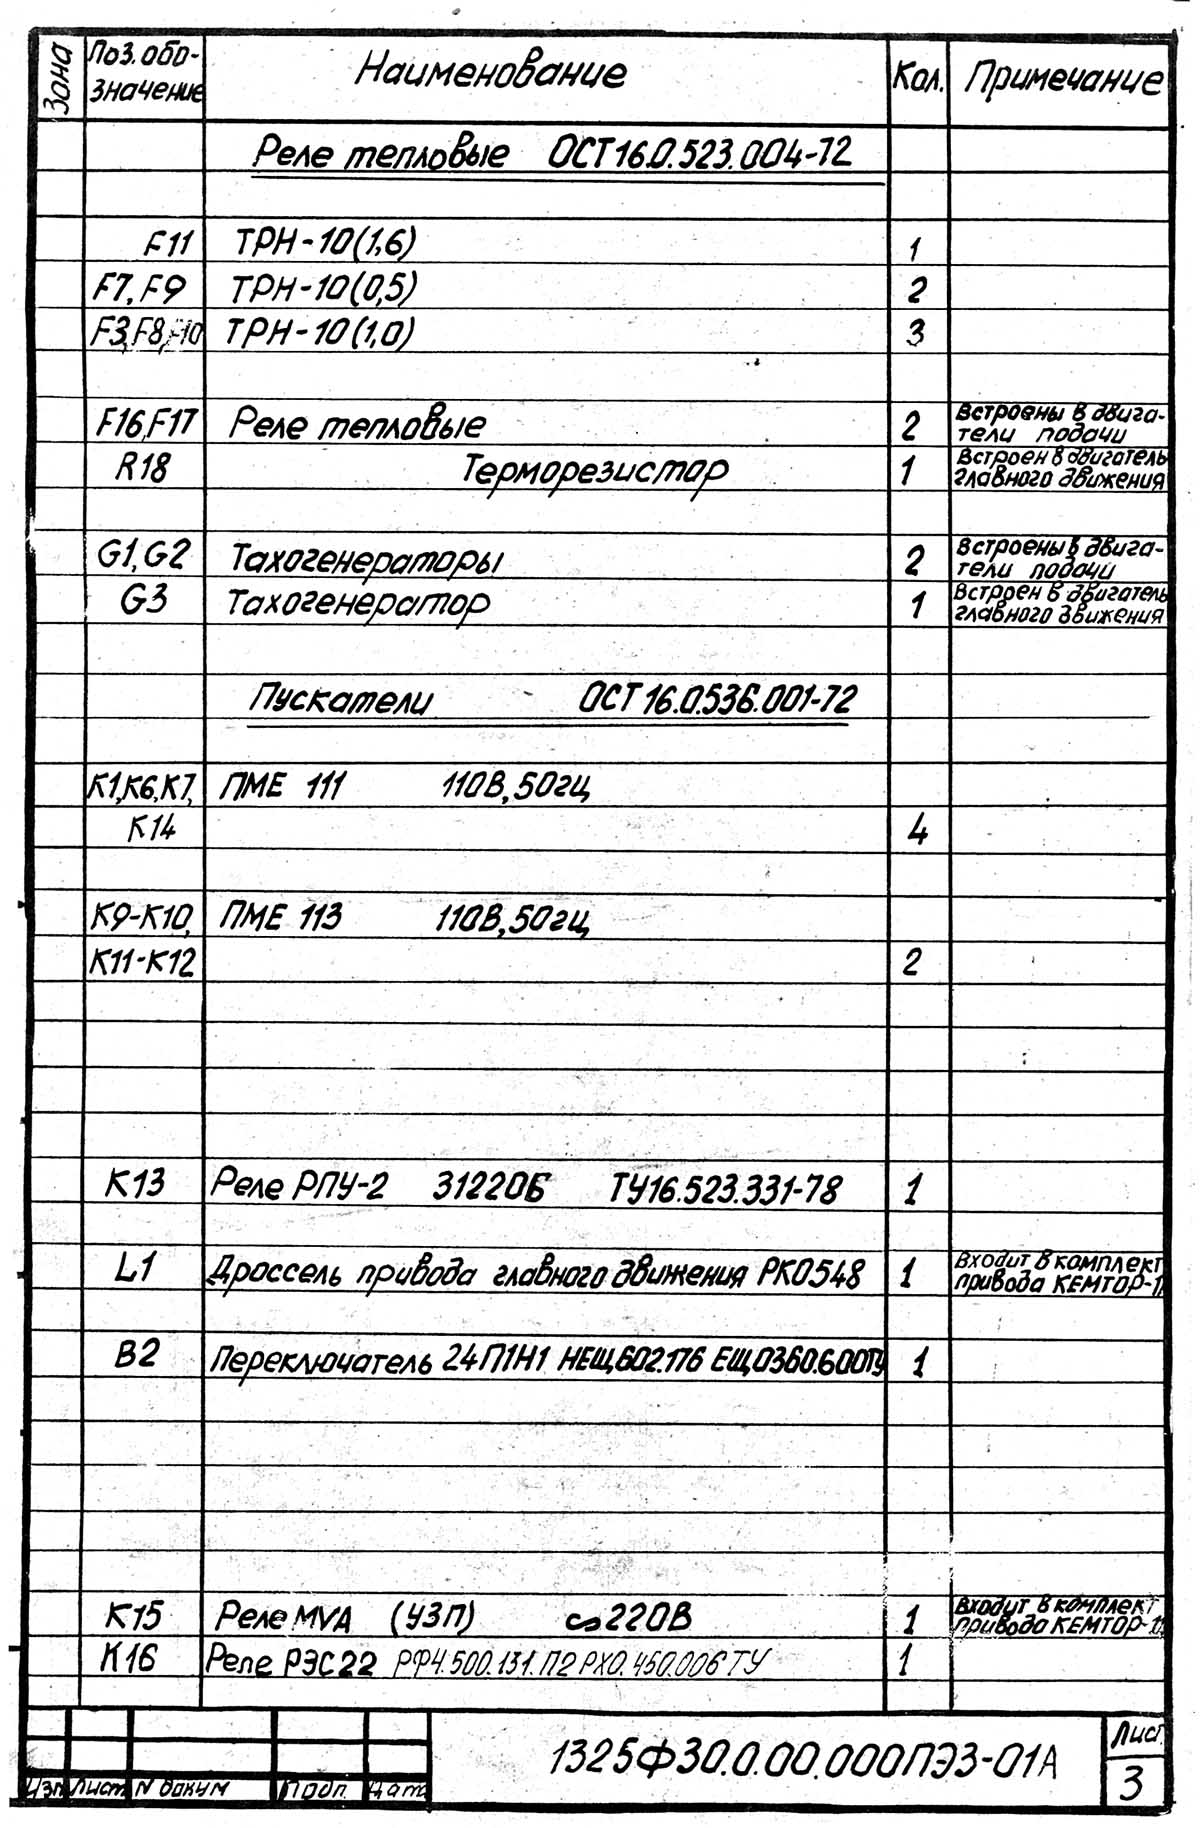 Зона Поз. обо- Наименование Кол. Примечание
значение
Реле тепловые ОСТ16.0.523.004-72
F11 ТРН-10(1,6) 1
F7, F9 ТРН-10(0,5) 2
F3,F8,F10 ТРН-10(1,0) 3
F16,F17 Реле тепловые 2 Встроены в двига-
тели подачи
R18 Терморезистор 1 Встроен в двигатель
главного движения
G1,G2 Тахогенераторы 2 Встроены в двига-
тели подачи
G3 Тахогенератор 1 Встроен в двигатель
главного движения
Пускатели ОСТ16.0.536.001-72
К1,К6,К7, ПМЕ 111 110В,50гц
К14 4
К9-К10, ПМЕ 113 110В,50гц
К11-К12 2
К13 Реле РПУ-2 312206 ТУ16.523.331-78 1
L1 Дроссель привода главного движения РКО548 1 Входит в комплект
привода КЕМТОР-11
В2 Переключатель 24П1Н1 НЕЩ,602.176 ЕЩ,0360.600ТУ 1
К15 Реле MVA (УЗП) ~220В 1 Входит в комплект
привода КЕМТОР-11
К16 Реле РЭС22 РФ4.500.131.П2 РХ0.450.006ТУ 1
1325Ф30.0.00.000ПЭ3-01А Лист
Изм Лист N докум Подп. Дата 3